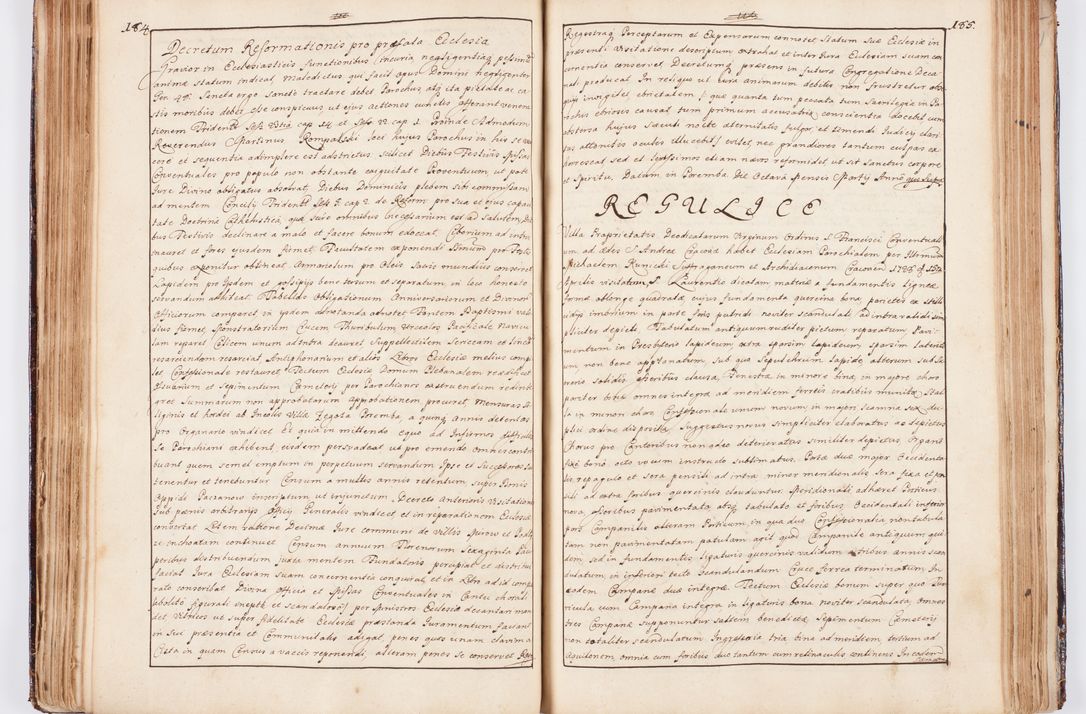 184
Decretum Reformationis pro præfata Ecclesia
Gravior in Ecclesiasticis functionibus incuria negligentiaq pessimū
animæ statum indicat, maledictus qui facit opus Domini negligenter
Ger: 48. Sancta ergo Sancte tractare debet Parochus atq ita pietate ac ca-
stis moribus debet esse conspicuus ut ejus actiones cunctis afferant venera
tionem Trident: Sess: cap 14 et Sess: 22 cap 1. Proinde Admodum
Reverendus Martinus Rompalski loci hujus Parochus in his se exer
cere et sequentia adimplere est adstrictus scilicet Diebus Festivis Missas
Conventuales pro populo non obstante exiguitate Proventuum, ut pote
Jure Divino obligatus absolvat, Diebus Dominicis plebem sibi commissam
ad mentem Concilij Trident: Sess: 5. cap 2. de Reform: pro sua et ejus capaci
tate Doctrina Cathechistica, quæ scire omnibus necessarium est ad salutem, Die
bus Festivis declinare a malo et facere bonum edoceat. Ciborium ad intra
inauret et fores ejusdem firmet, Facultatem exponendi Sanctissimum pro Festis
quibus exponitur obtineat. Armariolum pro Oleis Sacris mundius conservet
Lapidem pro Ijsdem et gossipijs bene tersum et separatum in loco honesto
servandum adhibeat. Tabellas Obligationum Anniversariorum et Divinorū
Officiorum comparet in ijsdem doventanda adnotet Fontem Baptismi vali
dius firmet, Monstratorium Crucem Thuribulum Urceolos Pacificale Navicu
lam reparet Calicem unum ad intra deauret Suppellectilem Sericeam et lineā
resarciendam resarciat, Antiphonarium et alios Libros Ecclesiæ melius compin
get Confessionale restauret, Tectum Ecclesiæ Domum Plebanalem reædificet
Ossuarium et Sepimentum Cæmeterij per Parochianos exstruendum redinte
gret Summarum non approbatarum approbationem procuret, Mensuras Si
liginis et hordei ab Incolis Villæ Zegota Poremba, a quinq Annis detentas
pro Organario vindicet Et quia in mittendo equo ad Infirmos difficiles
Se Parochiani exhibent, eisdem persuadeat ut pro emendo omnes contri
buant quem semel emptum in perpetuum servandum Ipse et Successores Sui
tenentur et tenebuntur Censum a multis annis retentum super Bonis
Oppidi Paczanow inscriptum ut injunctum Decreto Anterioris Visitationis
sub pœnis arbitrarijs Officij Generalis vindicet et in reparationem Ecclesiæ
convertat Litem ratione Decimæ Jure communi de Villis Spurow et Podle
sie inchoatam continuet Censum annuum Florenorum Sexaginta Pau
peribus distribuendum juxta mentem Fundatoris percipiat et distribui
faciat Jura Ecclesiam suam concernentia conquirat, et in Libro ad id compa
rato conscribat Divina Officia et Missas Conventuales in Cantu chorali
(abolito figurali inepte et scandaloso) per Ministros Ecclesiæ decantari man
det, Vitricos ut super fidelitate Ecclesiæ præstanda Juramentum faciant
in sui præsentia et Communitatis adigat, penes quos unam clavim a
Cista in quam Census a vaccis reponendi, alteram penes se conservet Rege

185.
Regestraq Perceptarum et Expensarum connotet, Statum Suæ Ecclesiæ in
præsenti Visitatione descriptum extrahat et inter Jura Ecclesiam suam con
cernentia conservet, Decretumq præsens in futura Congregatione Deca
nali producat. In reliquo ut cura animarum debitis non frustretur obse
quijs invigilet ebrietatem (quæ quanta tum peccata tum Sacrilegia in Pa
rochis ebriosis causat tum primum accusatrix conscientia docebit cum
absterea hujus Sæculi nocte æternitatis fulgor et timendi Judicij clari
tas attonitis oculis illucebit) evitet, nec grandiores tantum culpas ex
horrescat sed et levissimos etiam nævos reformidet, ut sit Sanctus corpore
et Spiritu. Datum in Poremba Die Octava Mensis Martij Anno quo supra
REGULICE
Villa Proprietatis Deodicatarum Virginum Ordinis S. Francisci Conventuali
um ad Ædes S. Andreæ Cracoviæ habet Ecclesiam Parochialem per Illrmum
Michaelem Kunicki Suffraganeum et Archidiaconum Cracovien: 1728 d 15ta
Aprilis visitatam S. Laurentio dicatam materiæ a fundamentis ligneæ
formæ oblongæ quadratæ, cujus fundamenta quercina bona, parietes ex stilli
cidijs imbrium in parte foris putridi noviter scandulati ad intra validi sim
pliciter depicti. Tabulatum antiquum ruditer pictum reparatum, Pavi
mentum in Presbyterio lapideum, extra sparsim lapideum, sparsim lateriti
um non bene apptanatum, sub quo Sepulchrum lapide, alterum sub Su
neno solidis asseribus clausa, Fenestræ in minore binæ, in majore choro
pariter binæ omnes integræ ad meridiem ferreis cratibus munitæ Stal
la in minori choro Confessionale unum novum, in majori scamna sex du
plici ordine disposita, Suggestus novus simpliciter elaboratus ac depictus
Chorus pro Cantoribus non adeo deterioratus similiter depictus Organū
fixæ bonū octo vocum instructo sublimatus. Portæ duæ major Occidenta
lis repagulo et sera pensili ad intra, minor meridionalis sera fixa et pen
sili ad extra foribus quercinis clauduntur, Meridionali adhæret Porticus
nova, asseribus pavimentata absq tabulato et foribus, Occidentali inferior
pars Campanilis alteram Porticum, in qua duo Confessionalia non tabula
tam non pavimentatam patulam agit quod Campanile antiquum qui
dem sed in fundamentis ligaturis quercinis validum Tribus annis scan
dulatum, in inferiori tecto scandulandum Cruce ferrea terminatum In
eodem Campanæ duæ integræ. Tectum Ecclesiæ bonum super quo Tur
ricula cum Campana integra in ligaturis bona noviter scandulata, omnes
tres Campanæ supponuntur saltem benedictæ, Sepimentum Cæmeterij
non totaliter scandulatum Ingressoria tria bina ad meridiem tertium ad
aquilonem, omnia cum foribus duo tantum cum retinaculis continens In eodem